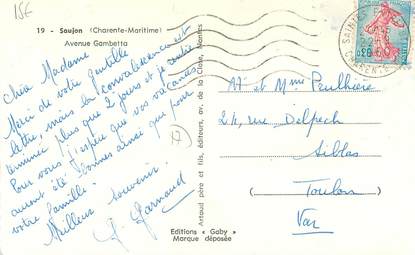 15€
19 - Saujon (Charente-Maritime)
Avenue Gambetta
Chère Madame
Merci de votre gentille
lettre, mais la convalescence est
terminée plus que 2 jours et je rentre
Pour vous j'espère que vos vacances
auront été bonnes ainsi que pour
votre famille.
Meilleur souvenir.
Garnaud
Artaud père et fils, éditeurs, av. de la Close, Nantes
Editions « Gaby »
Marque déposée
Mr et Mme Peuthière
24, rue Delpech
Siblas
(Toulon)
Var
CHARENTE